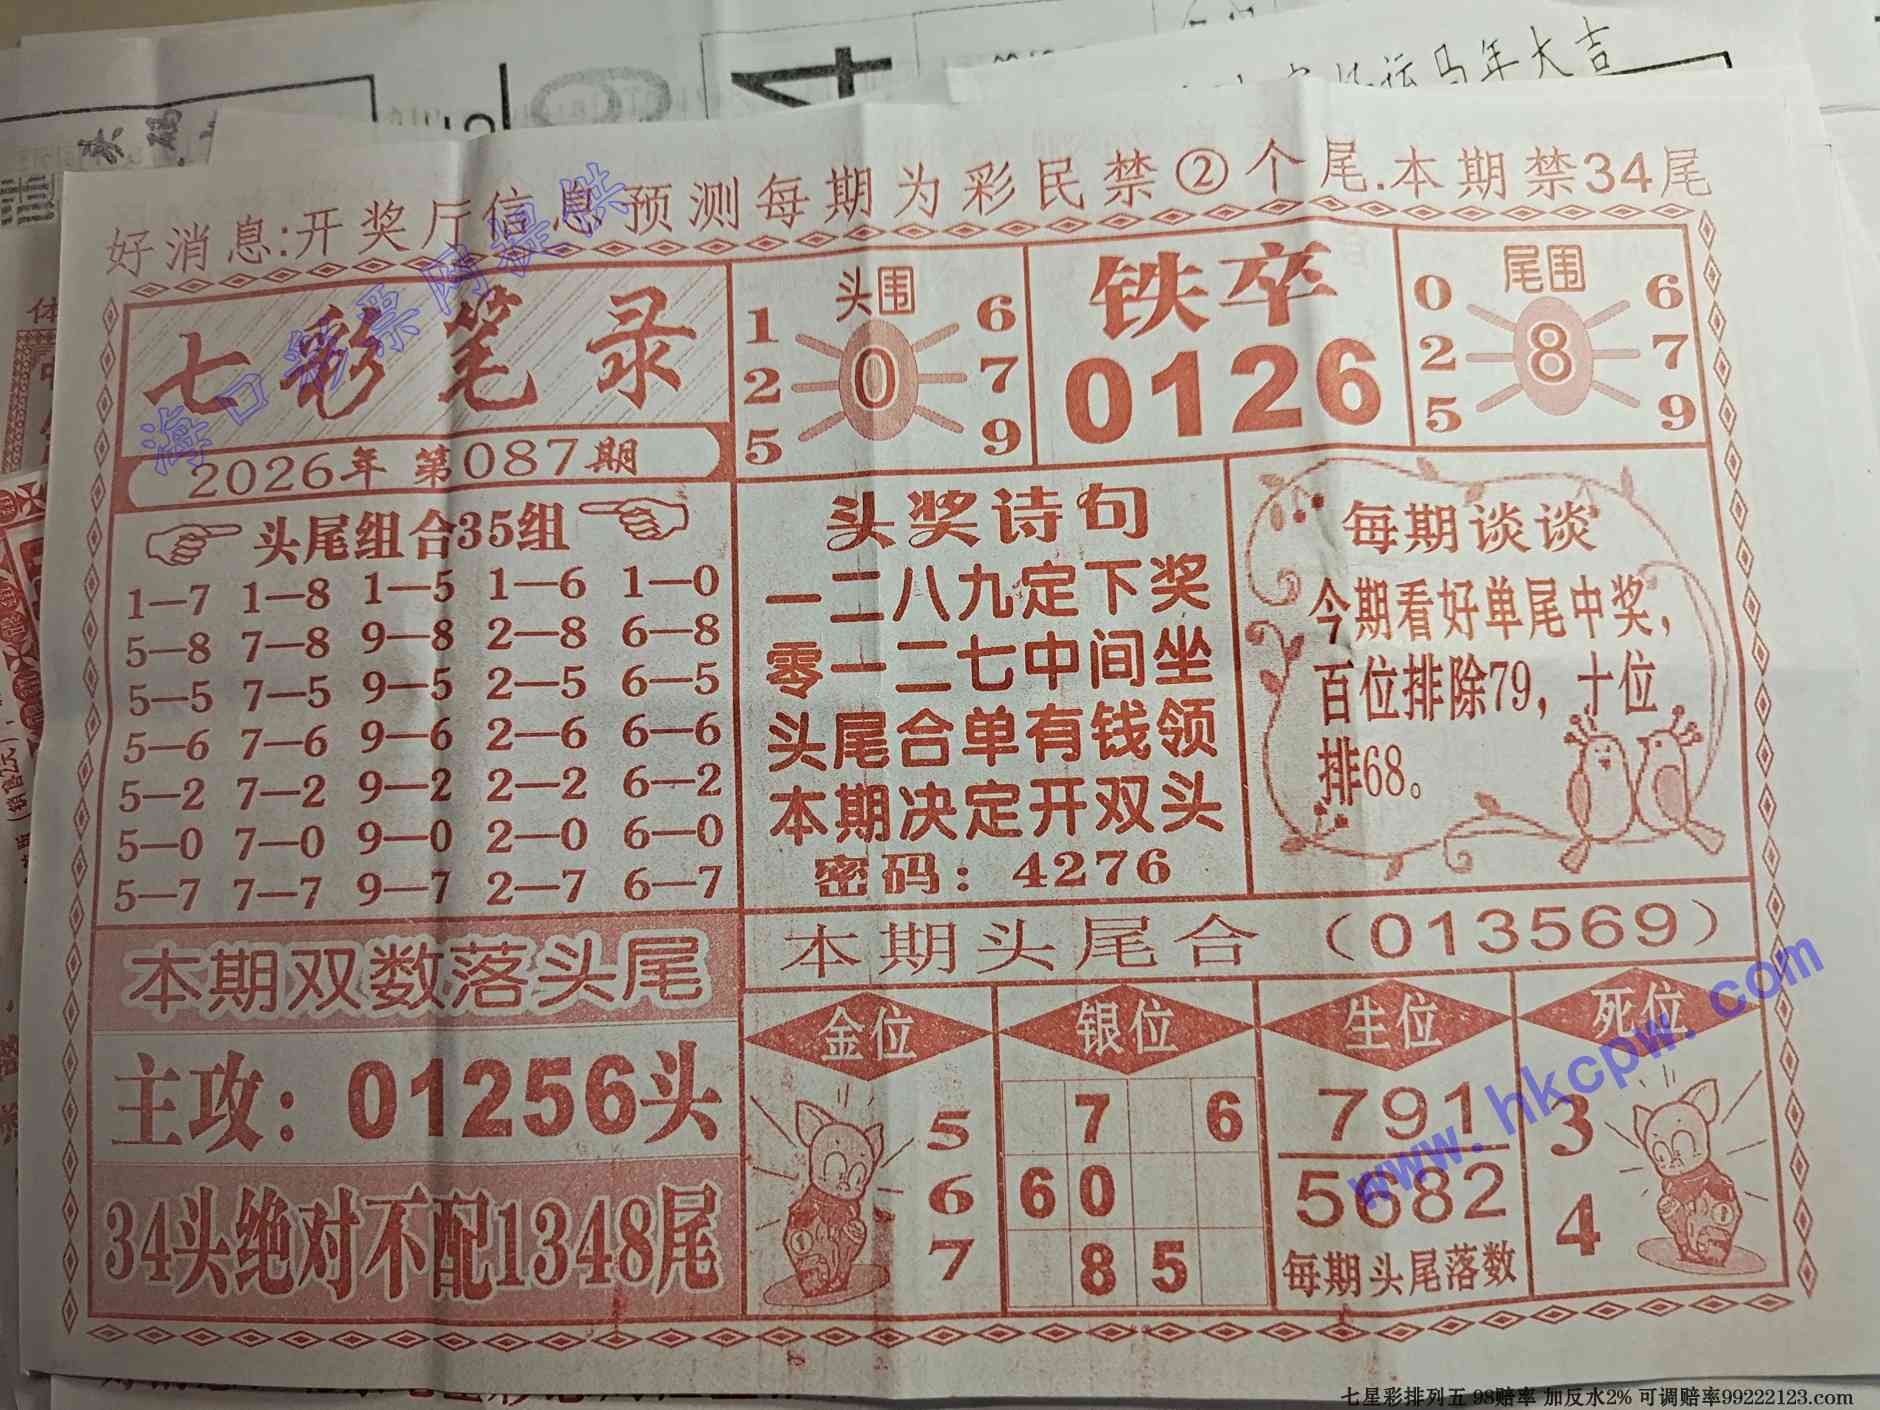 马年大吉
好消息:开奖厅信息预测每期为彩民禁②个尾.本期禁34尾
七彩笔录
2026年 第087期
头围
1 6
2 0 7
5 9
铁卒
0126
尾围
0 6
2 8 7
5 9
头尾组合35组
1—7 1—8 1—5 1—6 1—0
5—8 7—8 9—8 2—8 6—8
5—5 7—5 9—5 2—5 6—5
5—6 7—6 9—6 2—6 6—6
5—2 7—2 9—2 2—2 6—2
5—0 7—0 9—0 2—0 6—0
5—7 7—7 9—7 2—7 6—7
头奖诗句
一二八九定下奖
零一二七中间坐
头尾合单有钱领
本期决定开双头
密码：4276
每期谈谈
今期看好单尾中奖，
百位排除79，十位
排68。
本期双数落头尾
主攻：01256头
34头绝对不配1348尾
本期头尾合（013569）
金位
5
6
7
银位
7 6
6 0
8 5
生位
791
5682
每期头尾落数
死位
3
4
海口彩票网提供
www.hkcpw.com
七星彩排列五 98赔率 加反水2% 可调赔率99222123.com